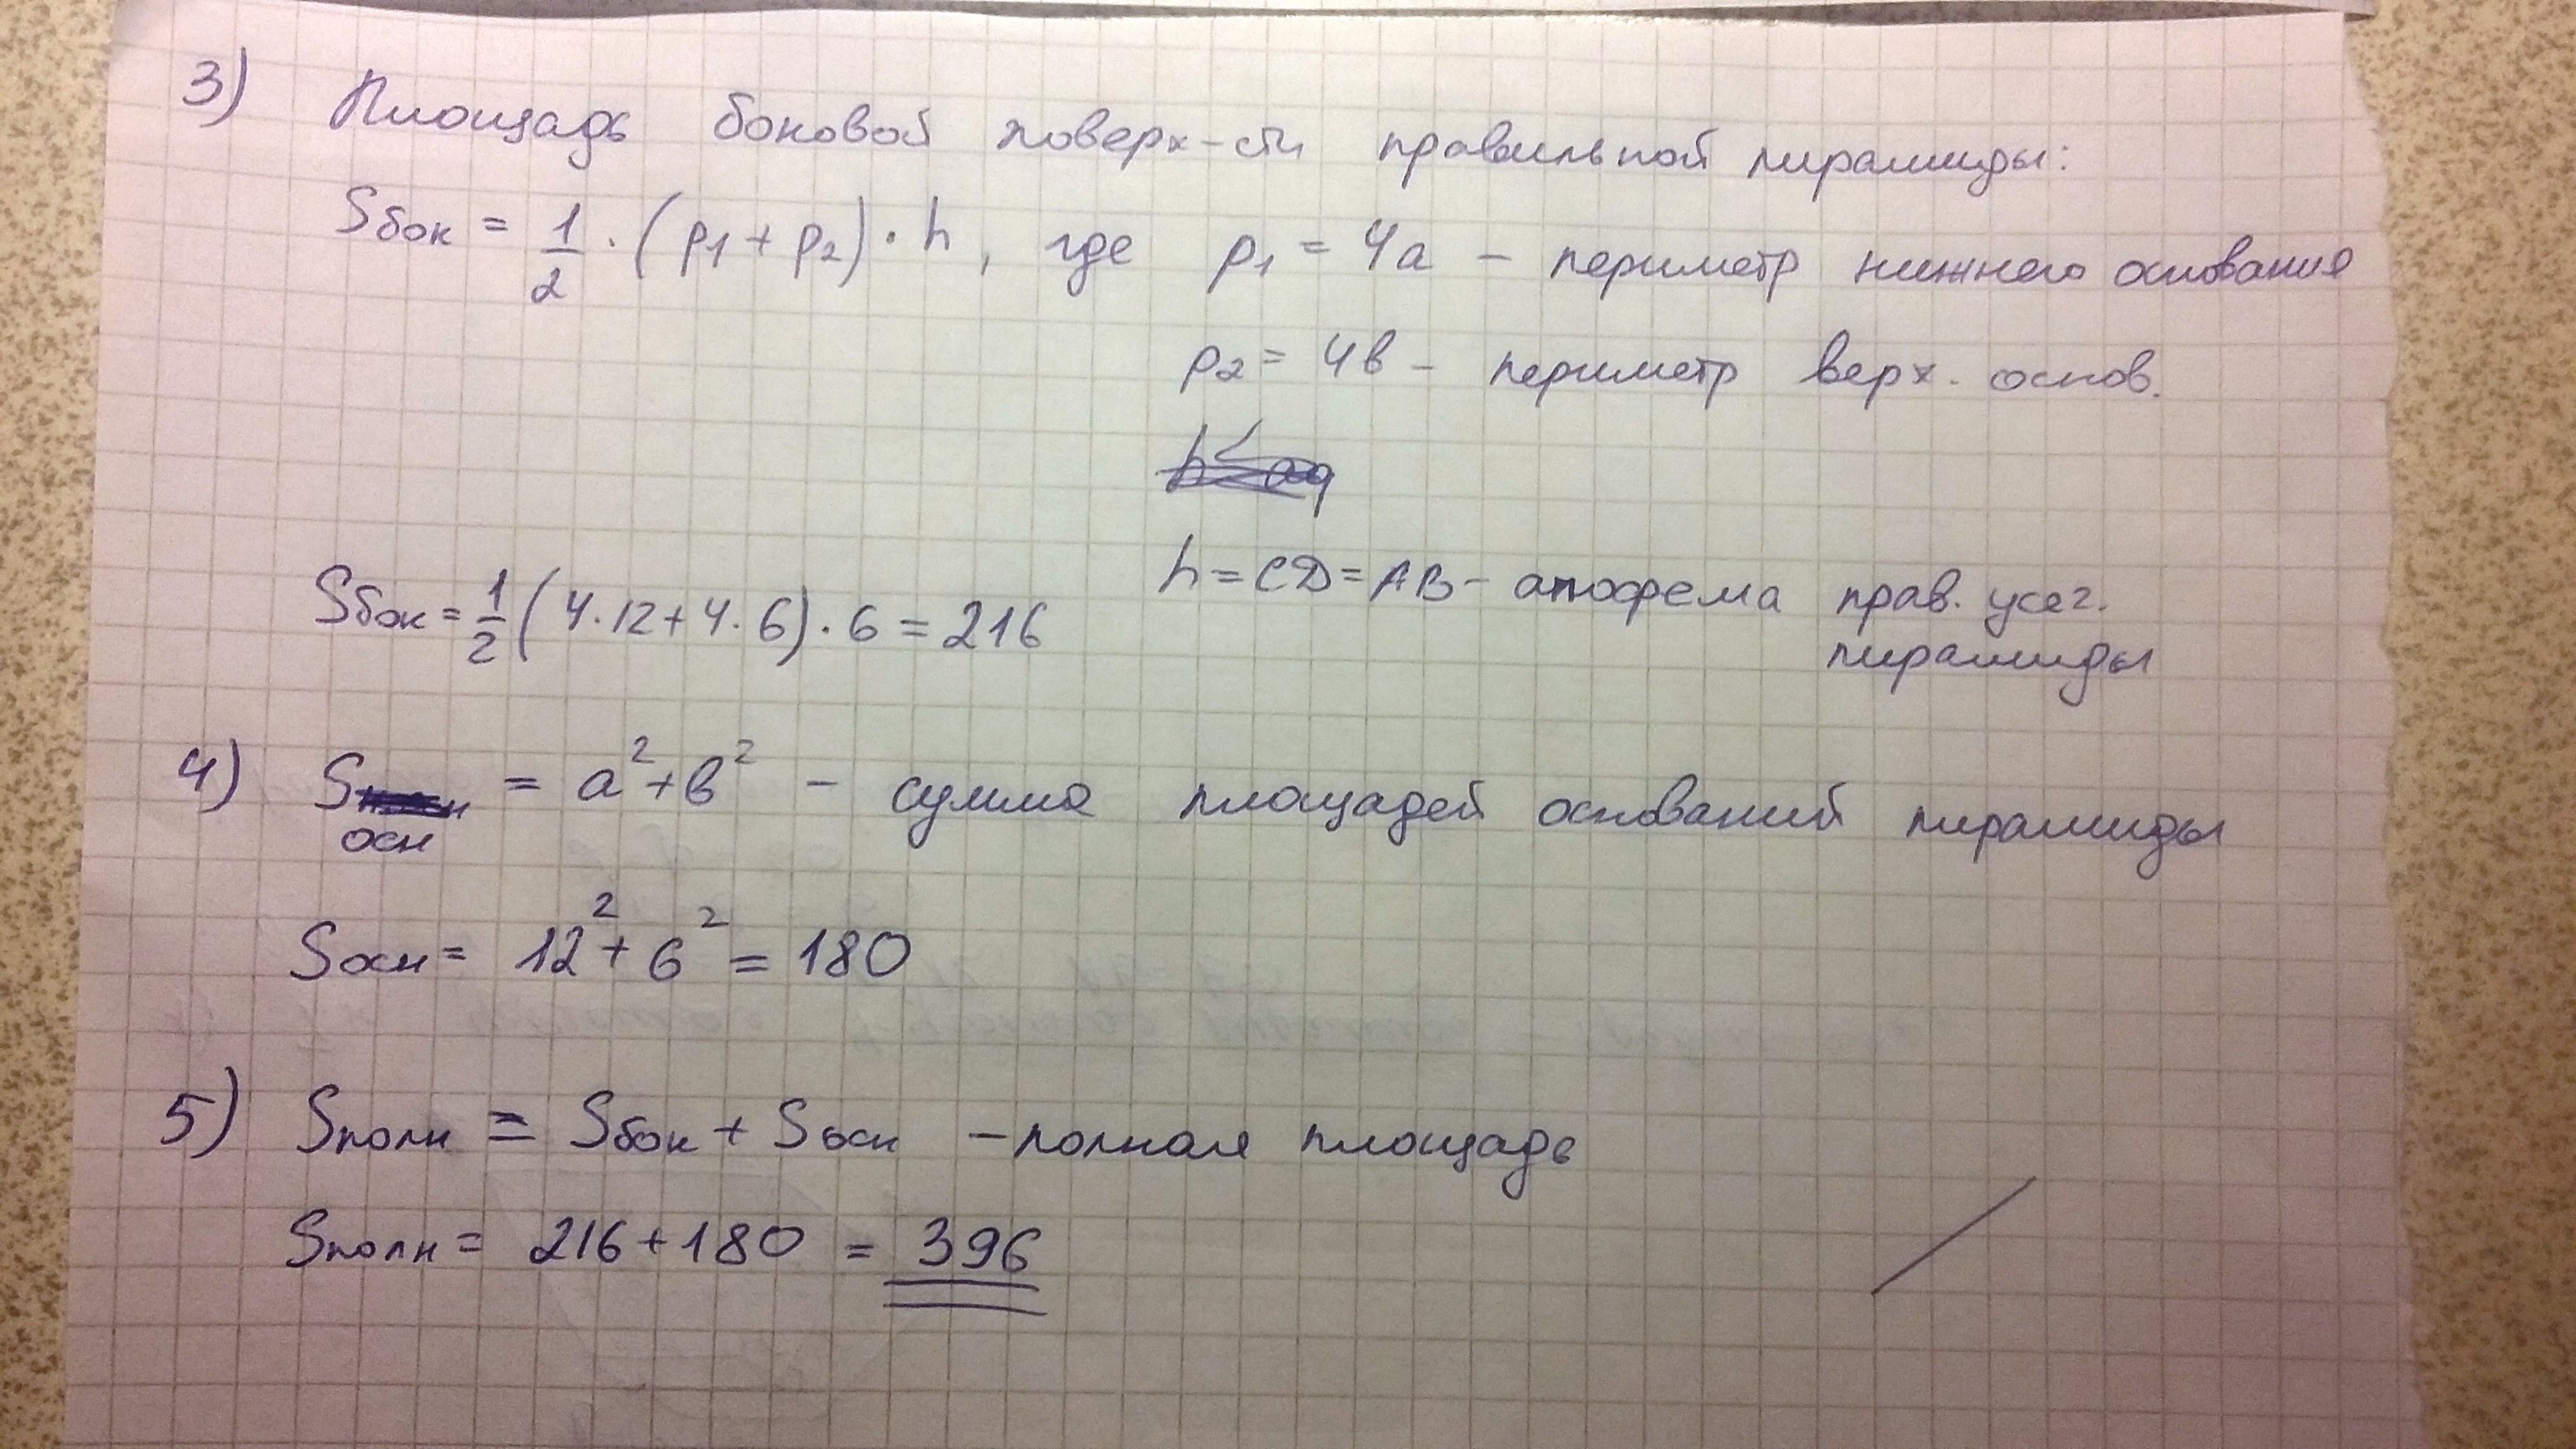 3) Площадь боковой поверх-сти правильной пирамиды:
Sбок = 1/2 · (p1 + p2) · h, где p1 = 4a – периметр нижнего основания
p2 = 4в – периметр верх. основ.
h = CD = AB – апофема прав. усег.
пирамиды
Sбок = 1/2 (4·12 + 4·6) · 6 = 216
4) Sосн = a² + в² – сумма площадей оснований пирамиды
Sосн = 12² + 6² = 180
5) Sполн = Sбок + Sосн – полная площадь
Sполн = 216 + 180 = 396